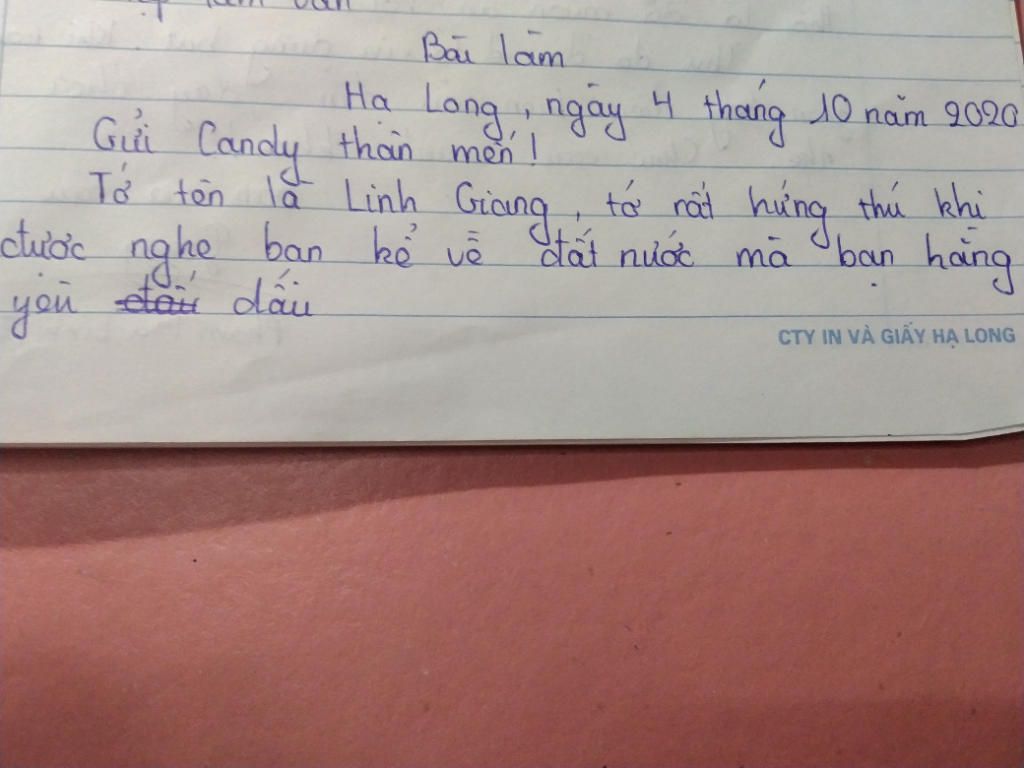 tập làm văn
Bài làm
Hạ Long, ngày 4 tháng 10 năm 2020
Gửi Candy thân mến!
Tớ tên là Linh Giang, tớ rất hứng thú khi
được nghe bạn kể về đất nước mà bạn hằng
yêu dấu
CTY IN VÀ GIẤY HẠ LONG